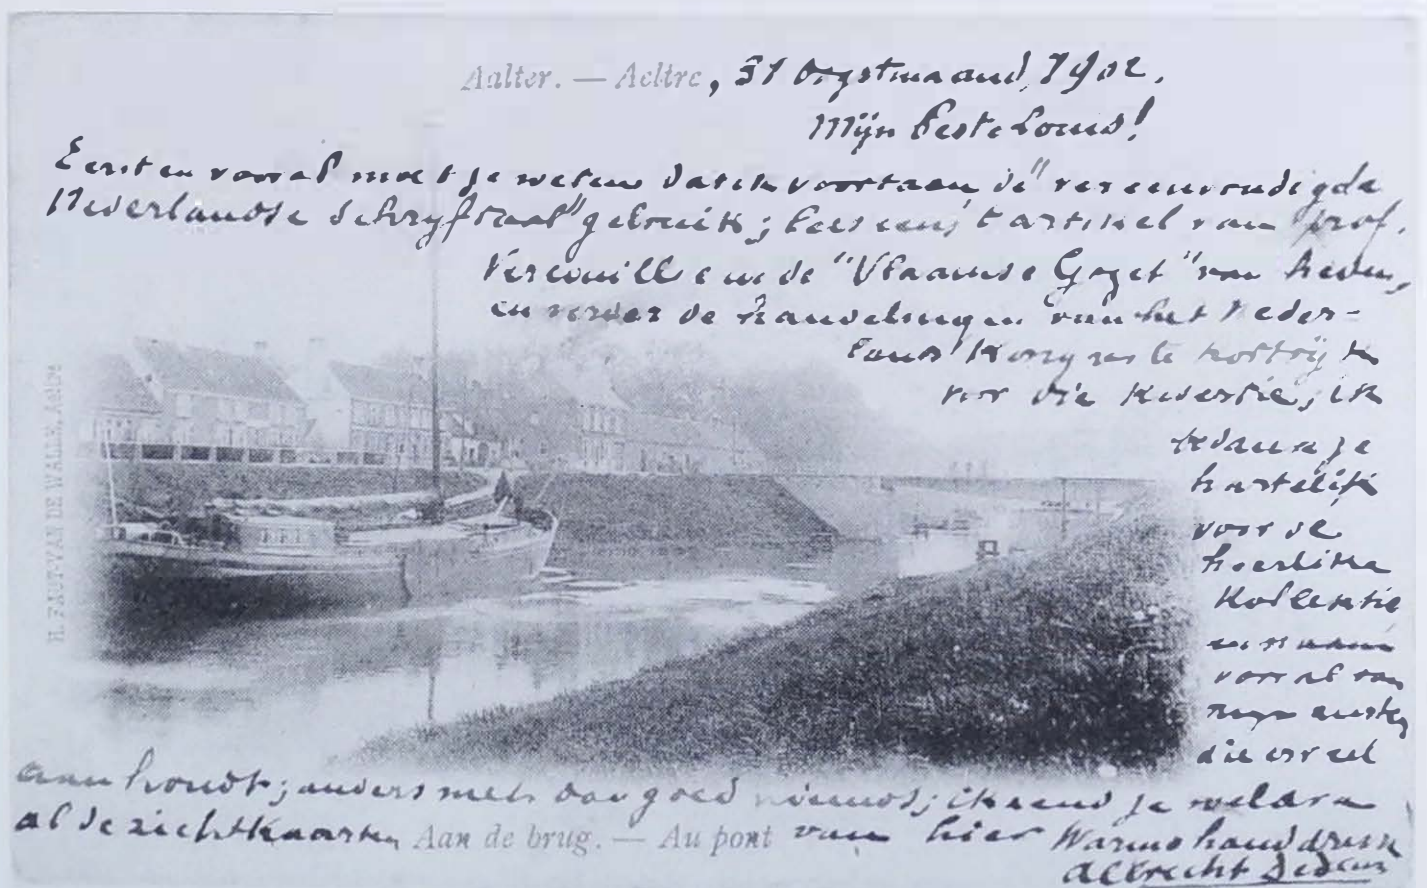 Aalter. — Aeltre, 31 Oogstmaand, 1902.
Mijn beste Louis!
Eerst en vooral moet je weten dat ik voortaan de "vereenvoudigde
Nederlandse schrijftaal" gebruik; lees eens 't artikel van prof.
Vercouillie in de "Vlaamse Gazet" van heden,
en verder de handelingen van het Neder-
lands Kongres te Kortrijk
vor die kwestie; ik
bedank je
hartelijk
voor de
heerlike
kollektie
en
vooral van
mijn
die er veel
aan houdt; anders niets dan goed nieuws; ik zend je weldra
al de zichtkaarten Aan de brug. — Au pont van hier Warme handdruk
Albrecht
H. FAUT-VAN DE WALLE, Aeltre